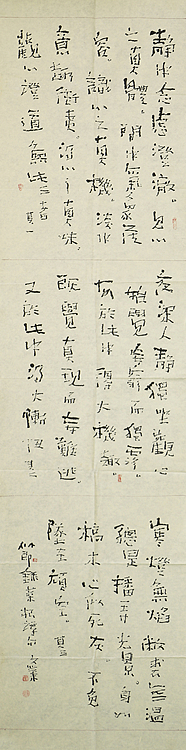 靜中念慮澄澈。見心
之真體。閒中氣象從
容。識心之真機。淡中
意趣沖夷。得心之真味。
觀心澄道無此三者 其一
夜深人靜獨坐觀心
始覺妄窮而真獨露
每於此中得大機趣。
既覺真現而妄難逃
又於此中得大慚忸 其二
寒燈無焰敝裘無溫
總是播弄光景。身如
槁木心似死灰。不免
墮在頑空。其三
錄菜根譚句